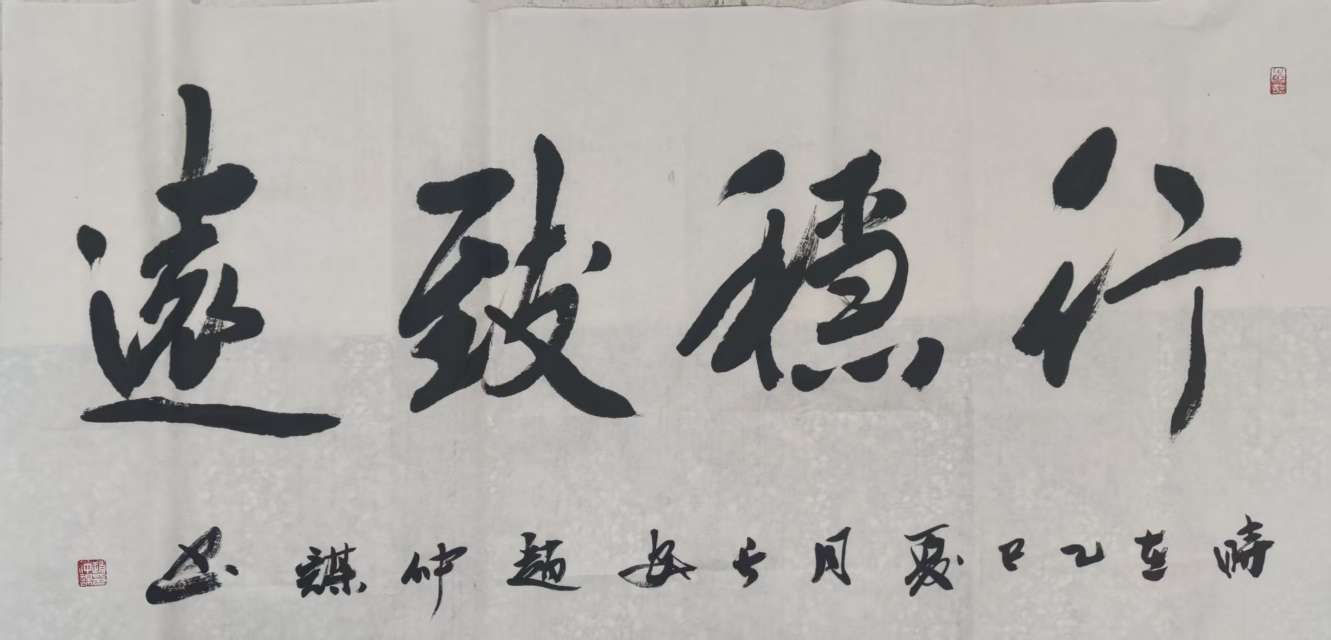 行穩致遠
時在乙巳夏月長安趙仲謀書